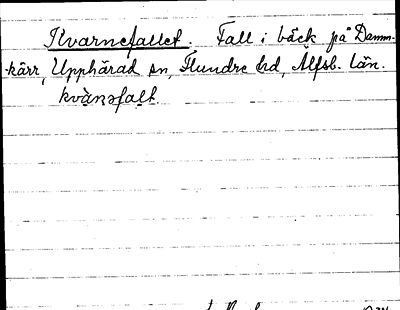 Kvarnefallet. Fall i bäck på Damm-
kärr, Upphärad sn, Flundre hd, Älfsb. län.
kvàṇəfalt.